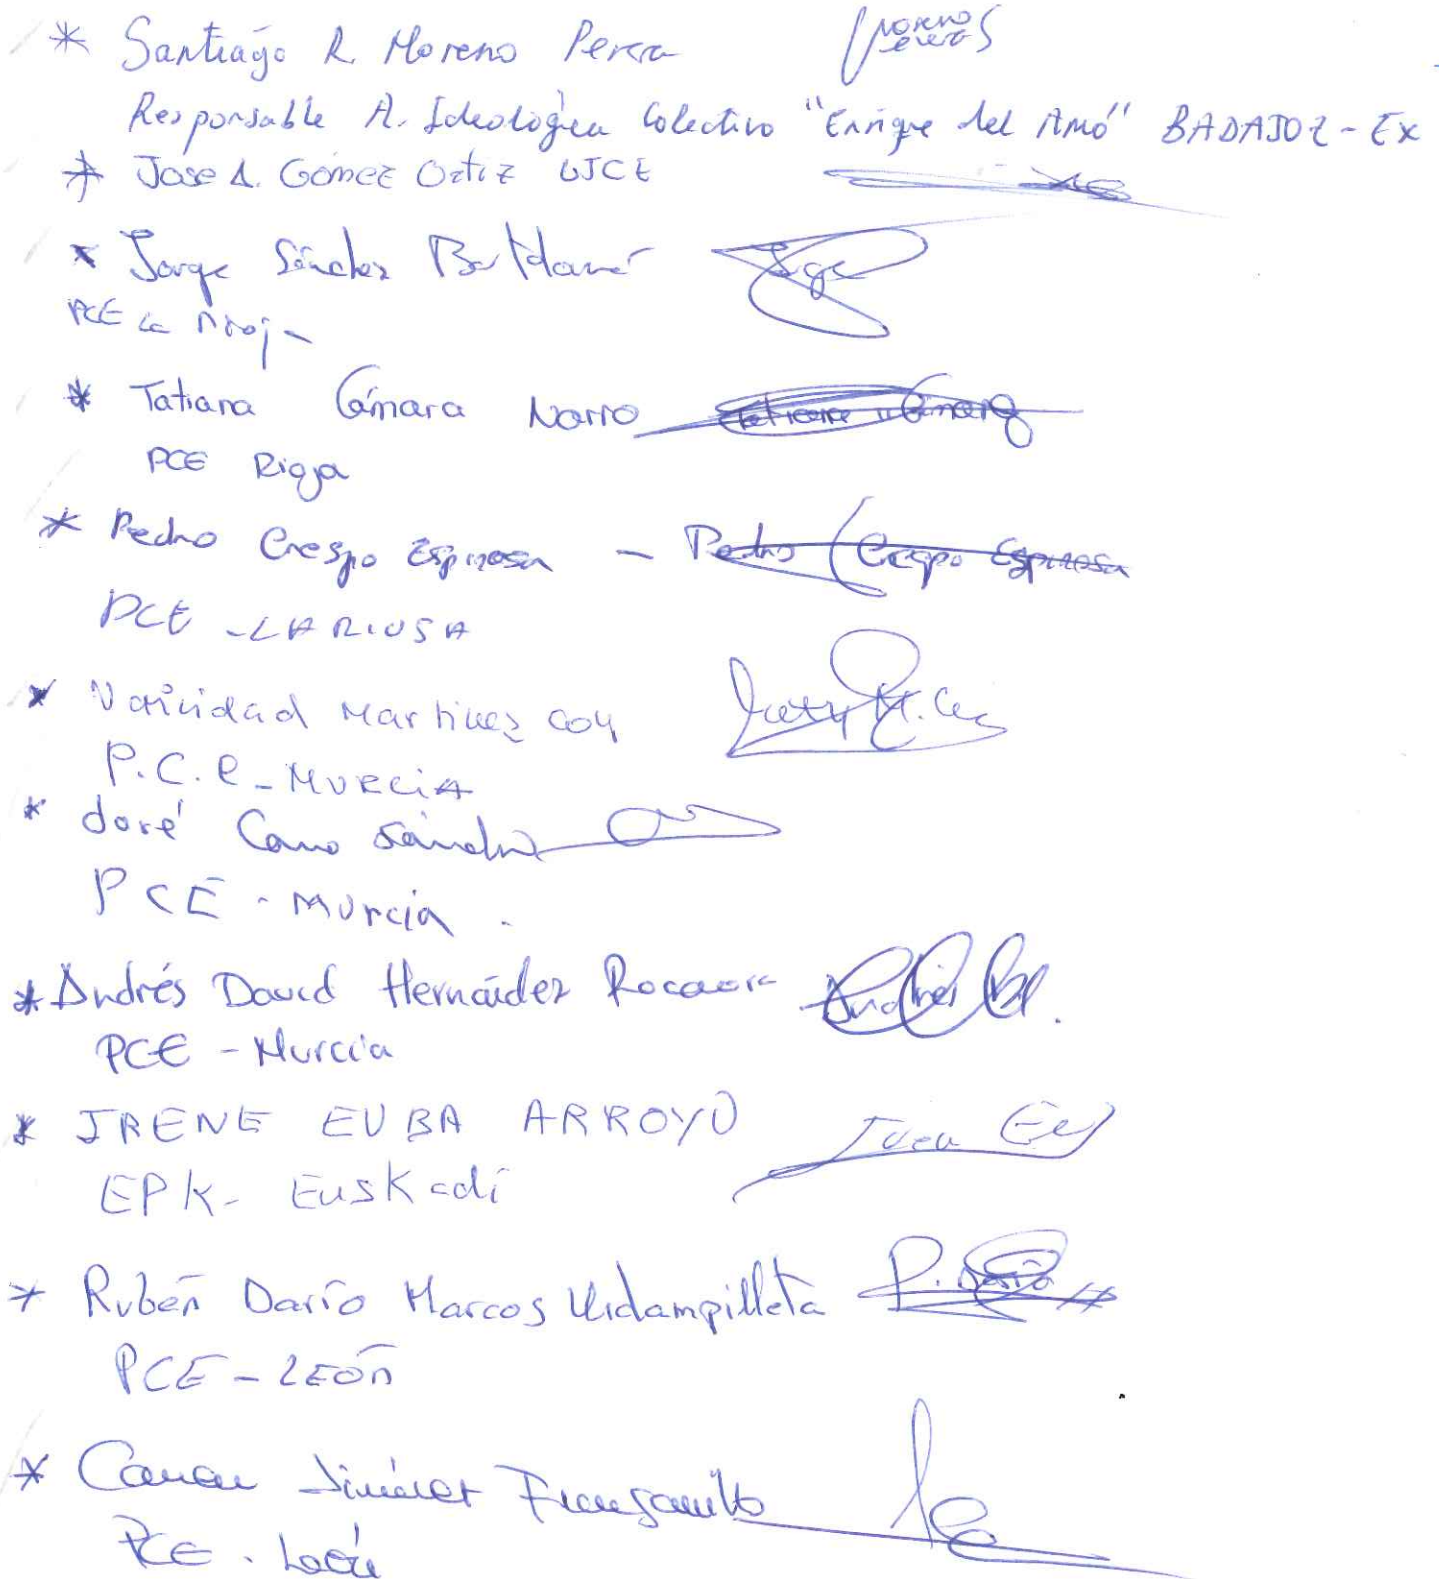 * Santiago R. Moreno Perera Moreno Perera
Responsable A. Ideológica Colectivo "Enrique del Amó" BADAJOZ - Ex
* Jose A. Gómez Ortiz UJCE
* Jorge Sánchez Jorge
PCE La Rioja
* Tatiana Cámara Narro Tatiana Cámara
PCE Rioja
* Pedro Crespo Espinosa - Pedro Crespo Espinosa
PCE - LA RIOJA
* Natividad Martinez Coy
P.C.E - MURCIA
* José Cano Sánchez
PCE - Murcia.
* Andrés David Hernández Rocamora Andrés
PCE - Murcia
* IRENE EUBA ARROYO Irene
EPK - Euskadi
* Rubén Darío Marcos Vidampilleta R. Darío
PCE - LEÓN
* Carmen Jiménez
PCE. León